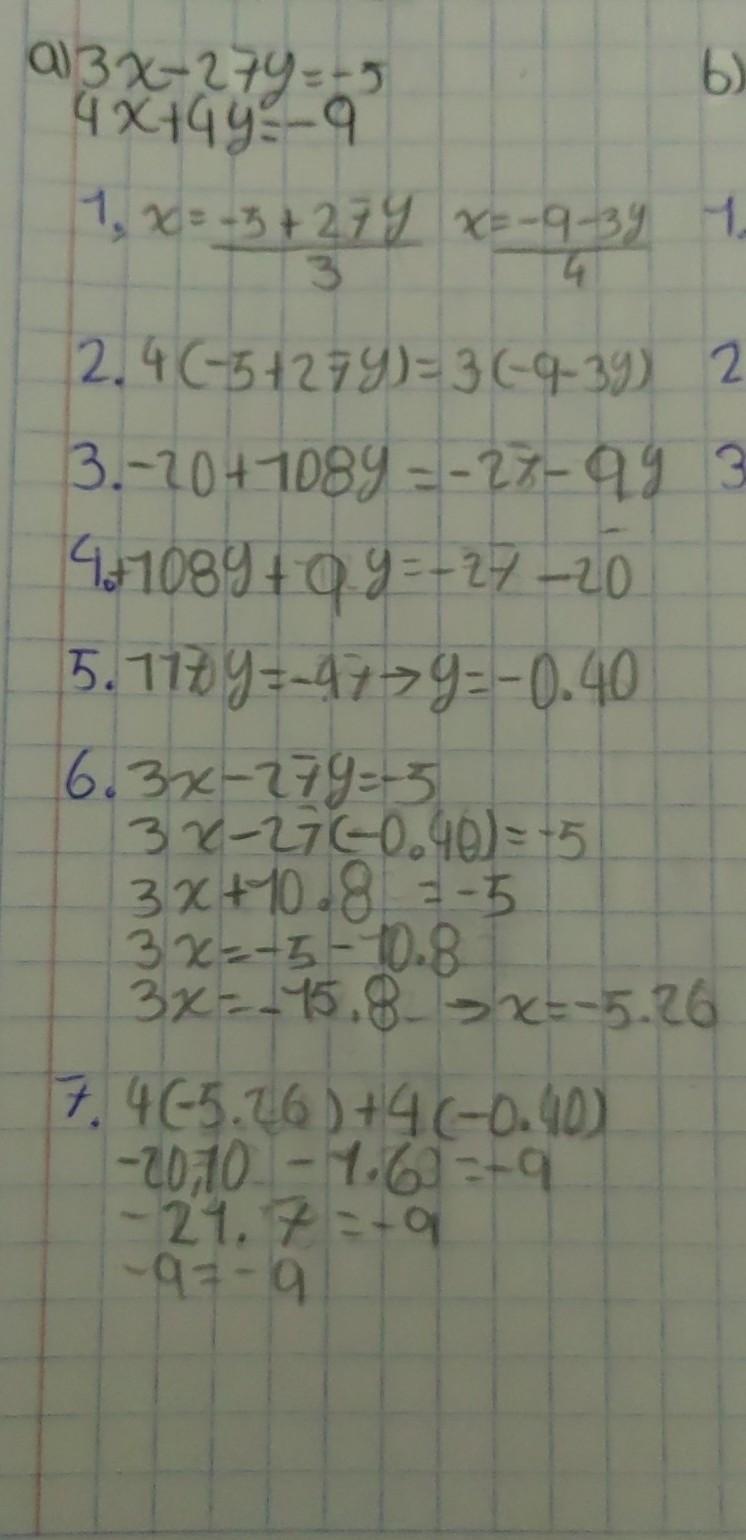 a) 3x-27y=-5
b)
4x+4y=-9
1. x=-5+27y/3 x=-9-3y/4
1.
2. 4(-5+27y)=3(-9-3y)
2
3. -20+108y=-27-9y
3
4. +108y+9y=-27-20
5. 117y=-47→y=-0.40
6. 3x-27y=-5
3x-27(-0.40)=-5
3x+10.8 =-5
3x=-5-10.8
3x=-15.8 →x=-5.26
7. 4(-5.26)+4(-0.40)
-20,10 -1.60=-9
-21.7=-9
-9=-9